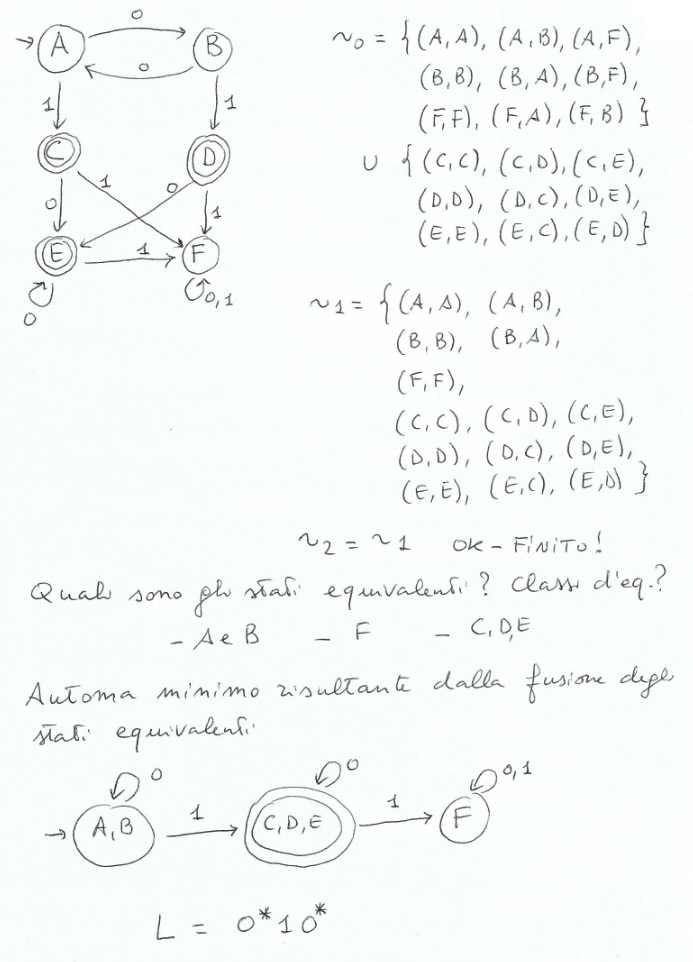 A
0
B
0
1
1
C
D
0
1
0
1
E
1
F
0
0,1
~0 = { (A,A), (A,B), (A,F),
(B,B), (B,A), (B,F),
(F,F), (F,A), (F,B) }
∪ { (C,C), (C,D), (C,E),
(D,D), (D,C), (D,E),
(E,E), (E,C), (E,D) }
~1 = { (A,A), (A,B),
(B,B), (B,A),
(F,F),
(C,C), (C,D), (C,E),
(D,D), (D,C), (D,E),
(E,E), (E,C), (E,D) }
~2 = ~1 OK - FINITO!
Quali sono gli stati equivalenti? Classi d'eq.?
- A e B - F - C,D,E
Automa minimo risultante dalla fusione degli
stati equivalenti
0
0
0,1
A,B
1
C,D,E
1
F
L = 0*10*